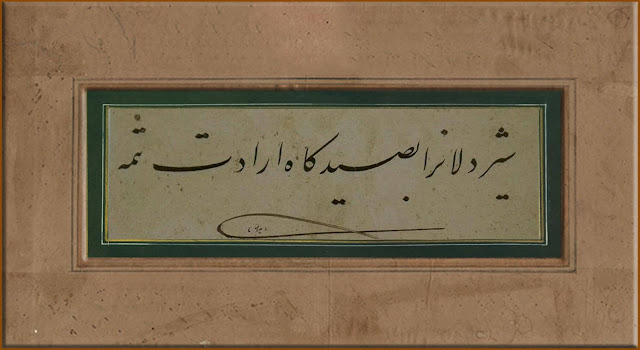 شیردلانرا بصیدکاه ارادت تمه